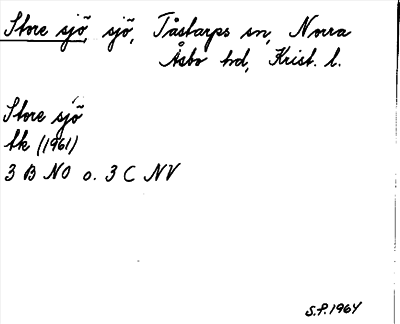 Store sjö, sjö, Tåstarps sn, Norra
Åsbo hd, Krist. l.
Store sjö
tk (1961)
3 B NO o. 3 C NV
S.F. 1964